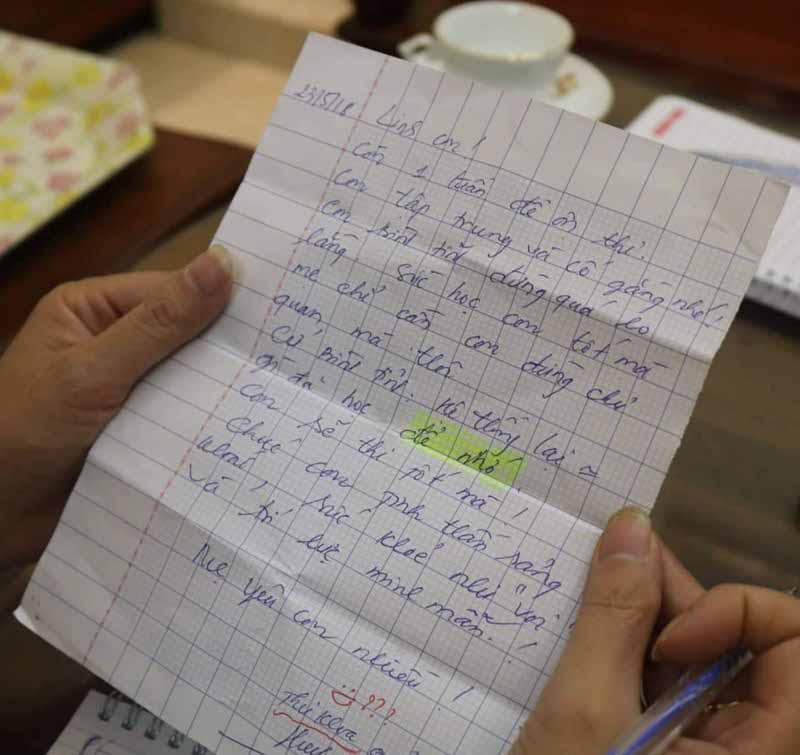 23/5/18
Linh ơi!
Còn 1 tuần để ôn thi.
Con tập trung và cố gắng nhé!
Con bình tĩnh đừng quá lo
lắng. Sức học con tốt mà
mẹ chỉ cần con đừng chủ
quan mà thôi.
Cứ bình tĩnh. Hệ thống lại ~
gì đã học để nhớ
Con sẽ thi tốt mà!
Chúc con tinh thần sảng
khoái, sức khoẻ như "voi"
và trí lực minh mẫn!
Mẹ yêu con nhiều!
???